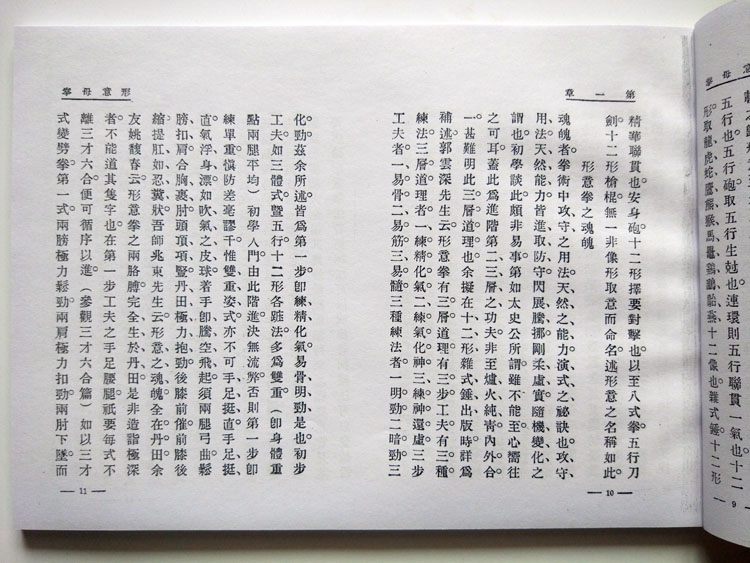 意母拳
五行也。五行砲取五行生尅也。連環則五行聯貫一氣也。十二
形取龍虎蛇鷹熊猴馬鼉鷄鷂鮐燕十二像也。雜式錘十二形
9
第一章
精華聯貫也。安身砲十二形擇要對擊也。以至八式拳五行刀
劍十二形槍棍、無一非像形取意而命名。述形意之名稱如此。
形意拳之魂魄
魂魄者拳術中攻守之用法、天然之能力、演式之祕訣也。攻守、
用法、天然能力、皆進取防守、閃展騰挪、剛柔虛實、隨機變化之
謂也。初學談此、頗非易事。第如太史公所謂雖不能至心嚮往
之可耳。蓋此爲進階第二三層之功夫、非至爐火純青、內外合
一、甚難明此三層道理也。余擬在十二形雜式錘出版時詳爲
補述。郭雲深先生云、形意拳有三層道理、有三步工夫、有三種
練法。三層道理者、一練精化氣、二練氣化神、三練神還虛。三步
工夫者、一易骨、二易筋、三易髓。三種練法者、一明勁、二暗勁、三
10
形意母拳
化勁。茲余所述、皆爲第一步、卽練精化氣、易骨、明勁是也。初步
工夫、如三體式、曁五行、十二形、各蹝法、多爲雙重、（卽身體重
點兩腿平均）初學入門、由此階進、決無流弊。否則第一步卽
練單重、愼防差毫謬千。惟雙重姿式、亦不可手足挺直、手足挺
直、氣浮身漂、如吹氣之皮球、着手卽騰空飛起。須兩腿弓曲、鬆
膀扣肩、合胸裹肘、頭頂項豎、丹田極力抱勁、後膝前催、前膝後
縮、提肛如忍糞狀。吾師兆東先生云、形意之魂魄、全在丹田、余
友姚馥春云、形意拳之兩胳膊、完全生於丹田、是非造詣極深
者、不能道其隻字也。在第一步工夫之手足腰腿、祇要每式不
離三才六合、便可循序以進。（參觀三才六合篇）如以三才
式變劈拳、第一式、兩膀極力鬆勁、兩肩極力扣勁、兩肘下墜、而
11